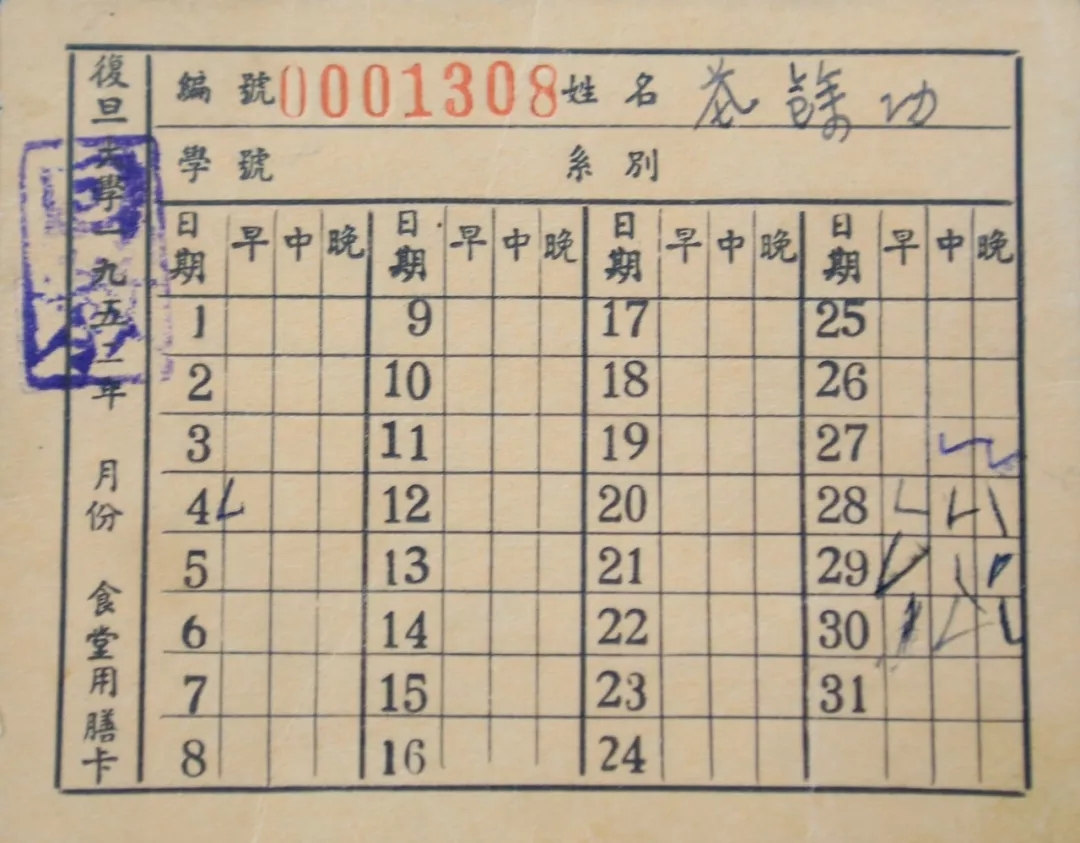 復旦大學一九五二年 月份 食堂用膳卡
編號 0001308 姓名 餘功
學號 系別
日期 早 中 晚 日期 早 中 晚 日期 早 中 晚 日期 早 中 晚
1 9 17 25
2 10 18 26
3 11 19 27
4 12 20 28
5 13 21 29
6 14 22 30
7 15 23 31
8 16 24